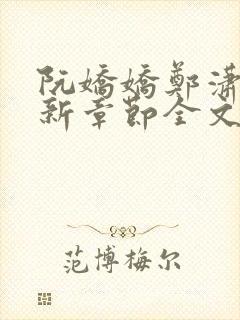 阮嬌嬌鄭瀟
新章節全文
范博梅尔